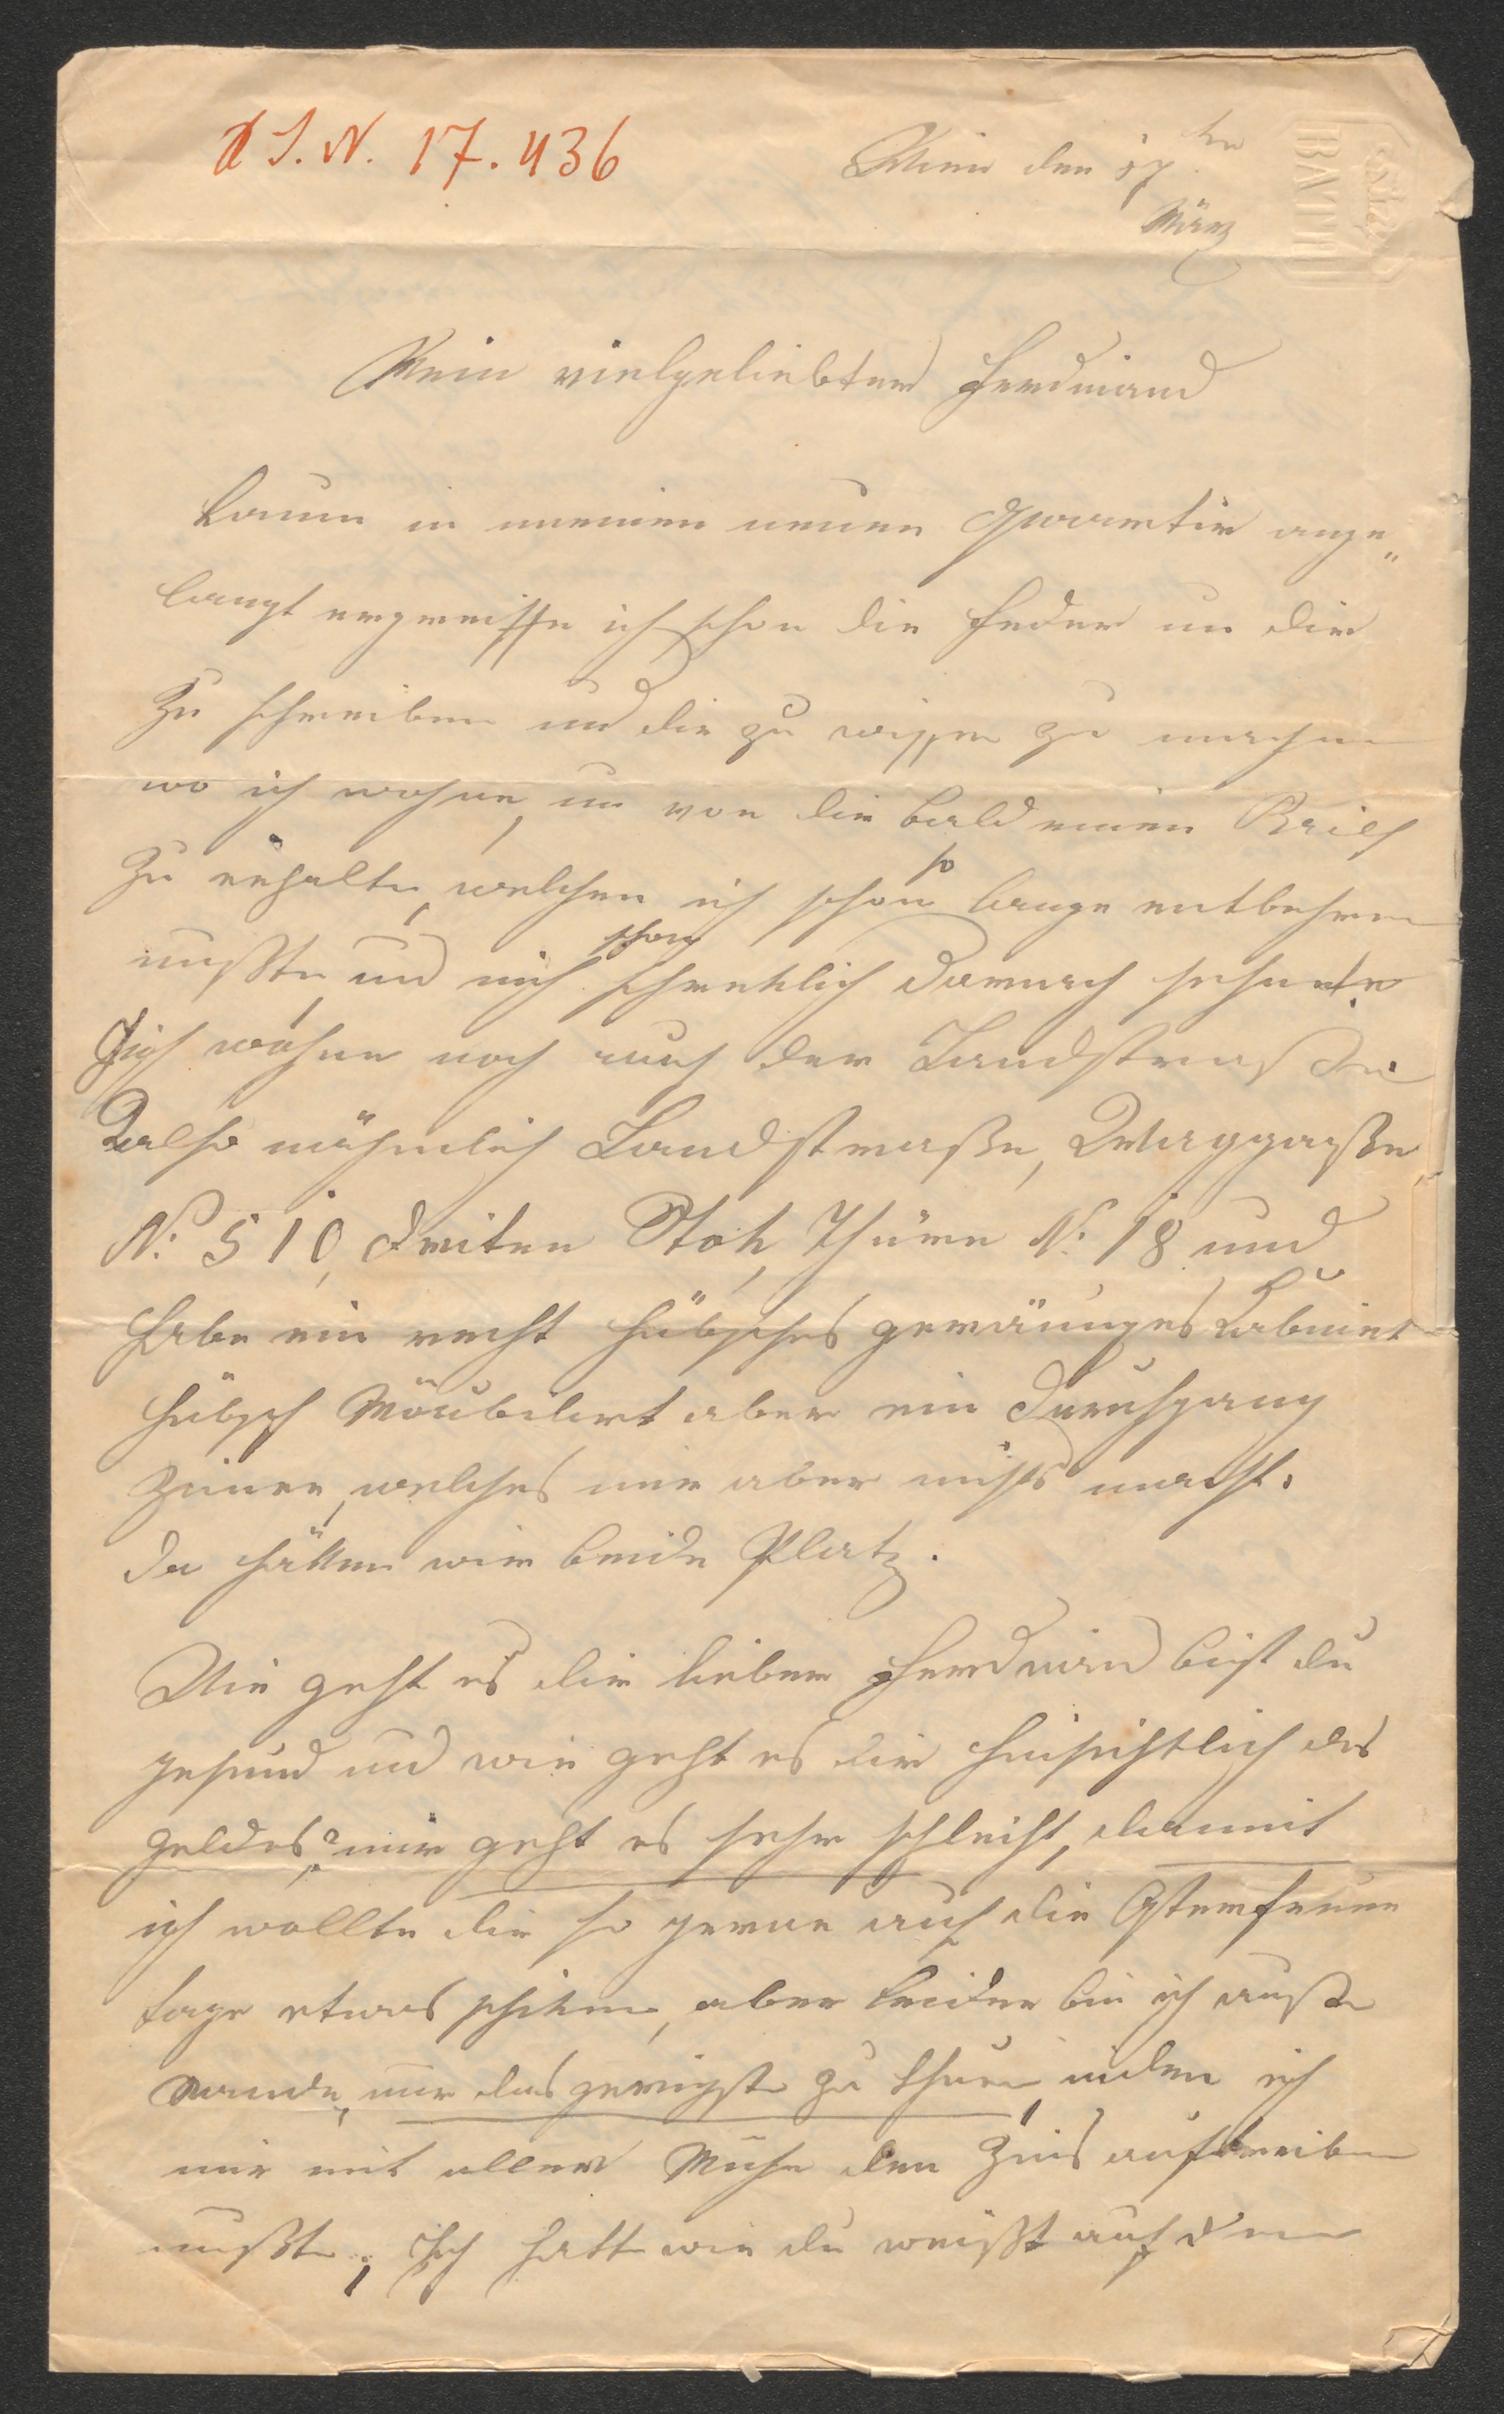 I. N. 17.436
Wien den 17ten
März
BATH
Mein vielgeliebter Ferdinand
Kaum in meinem neuen Quartier ange„
langt ergreiffe ich schon die Feder um dir
zu schreiben und dir zu wissen zu machen
wo ich wohne, um von dir bald einen Brief
zu erhalten, welchen ich schon so lange entbehren
mußte, und mich schon schreklich darnach sehnte.
Ich wohne noch auf der Landstraße
also nähmlich Landstraße, Raggasße
No. 510, dritten Stok, Thüre No. 18 und
habe ein recht hübsches geräumiges Kabinet
hübsch Möubelirt aber ein Durchgang
Zimer, welches mir aber nichts macht.
da hätten wir beide Platz.
Wie geht es dir lieber Ferdinand bist du
gesund und wie geht es dir hinsichtlich des
Geldes? mir geht es sehr schlecht, damit
ich wollte dir so gerne auf die Osterfeuer
tage etwas schiken, aber leider bin ich auße
Stande, nur das geringste zu thuen, indem ich
mir mit aller Mühe den Zins auftreiben
mußte; Ich hatte wie du weißt auf dem